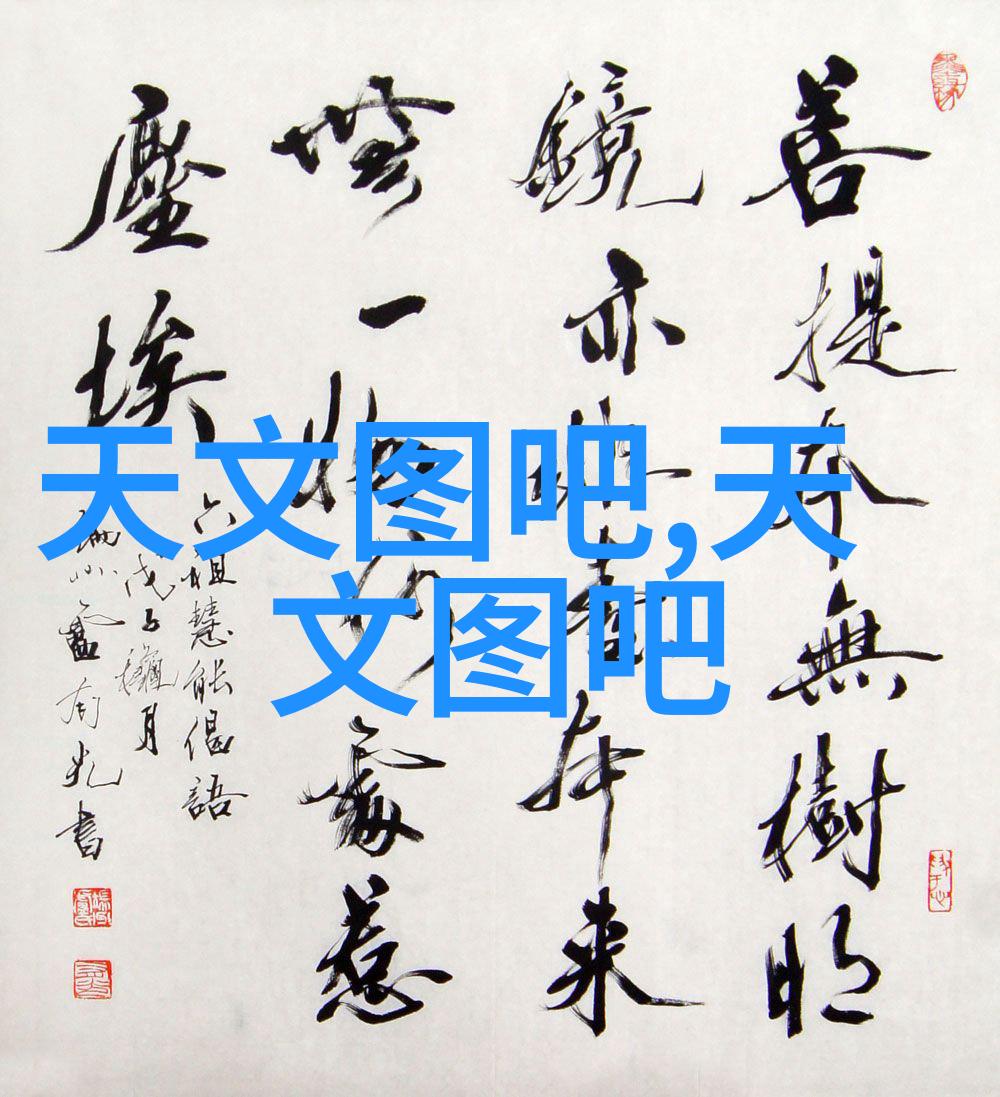 菩提本無樹明
鏡亦非臺本来
無一物何處惹
塵埃
六祖慧能偈語
戊子龝月
書
天文图吧,天
文图吧